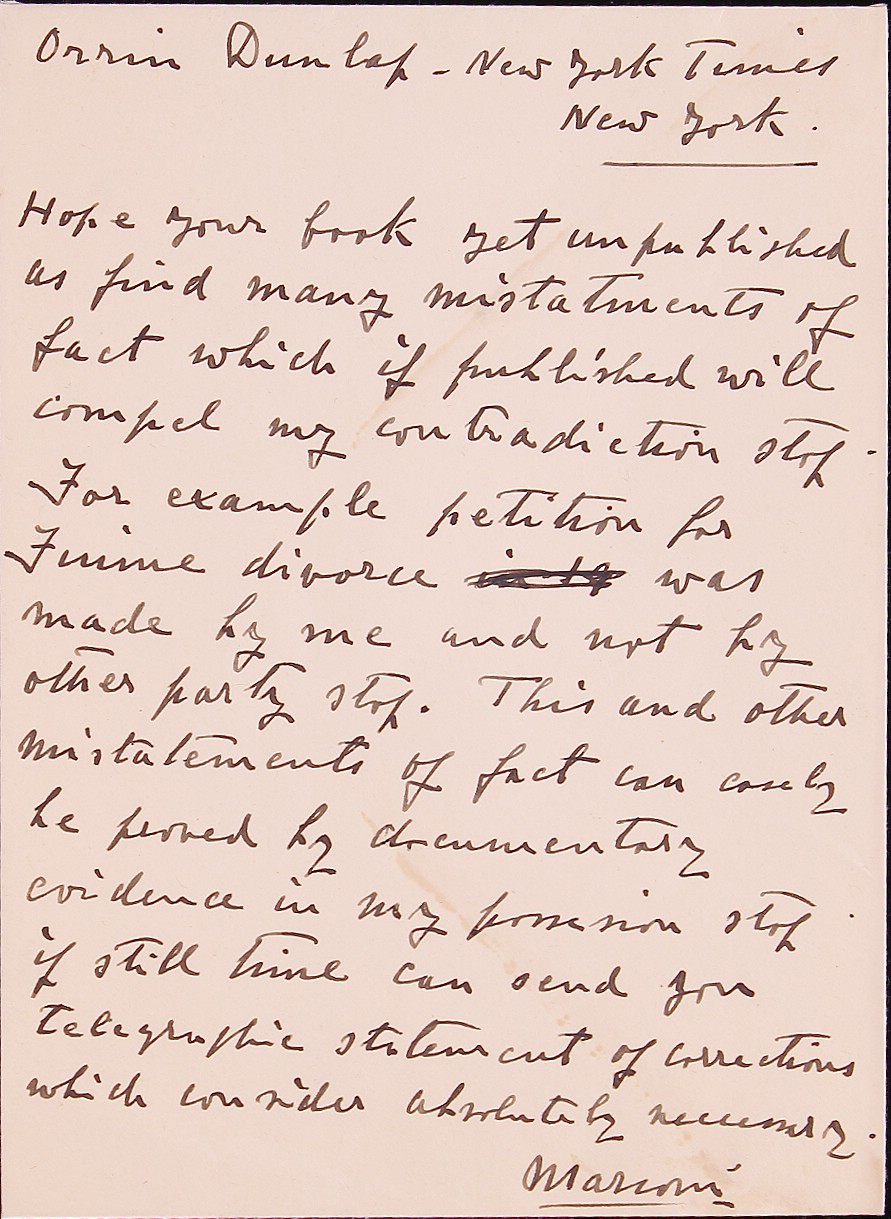 Orrin Dunlap - New York Times
New York.
Hope your book yet unpublished
as find many mistatments of
fact which if published will
compel my contradiction stop.
For example petition for
Fiume divorce was
made by me and not by
other party stop. This and other
mistatements of fact can easely
be proved by documentary
evidence in my possesion stop.
if still time can send you
telegraphic statement of corrections
which consider absolutely neccessary.
Marconi